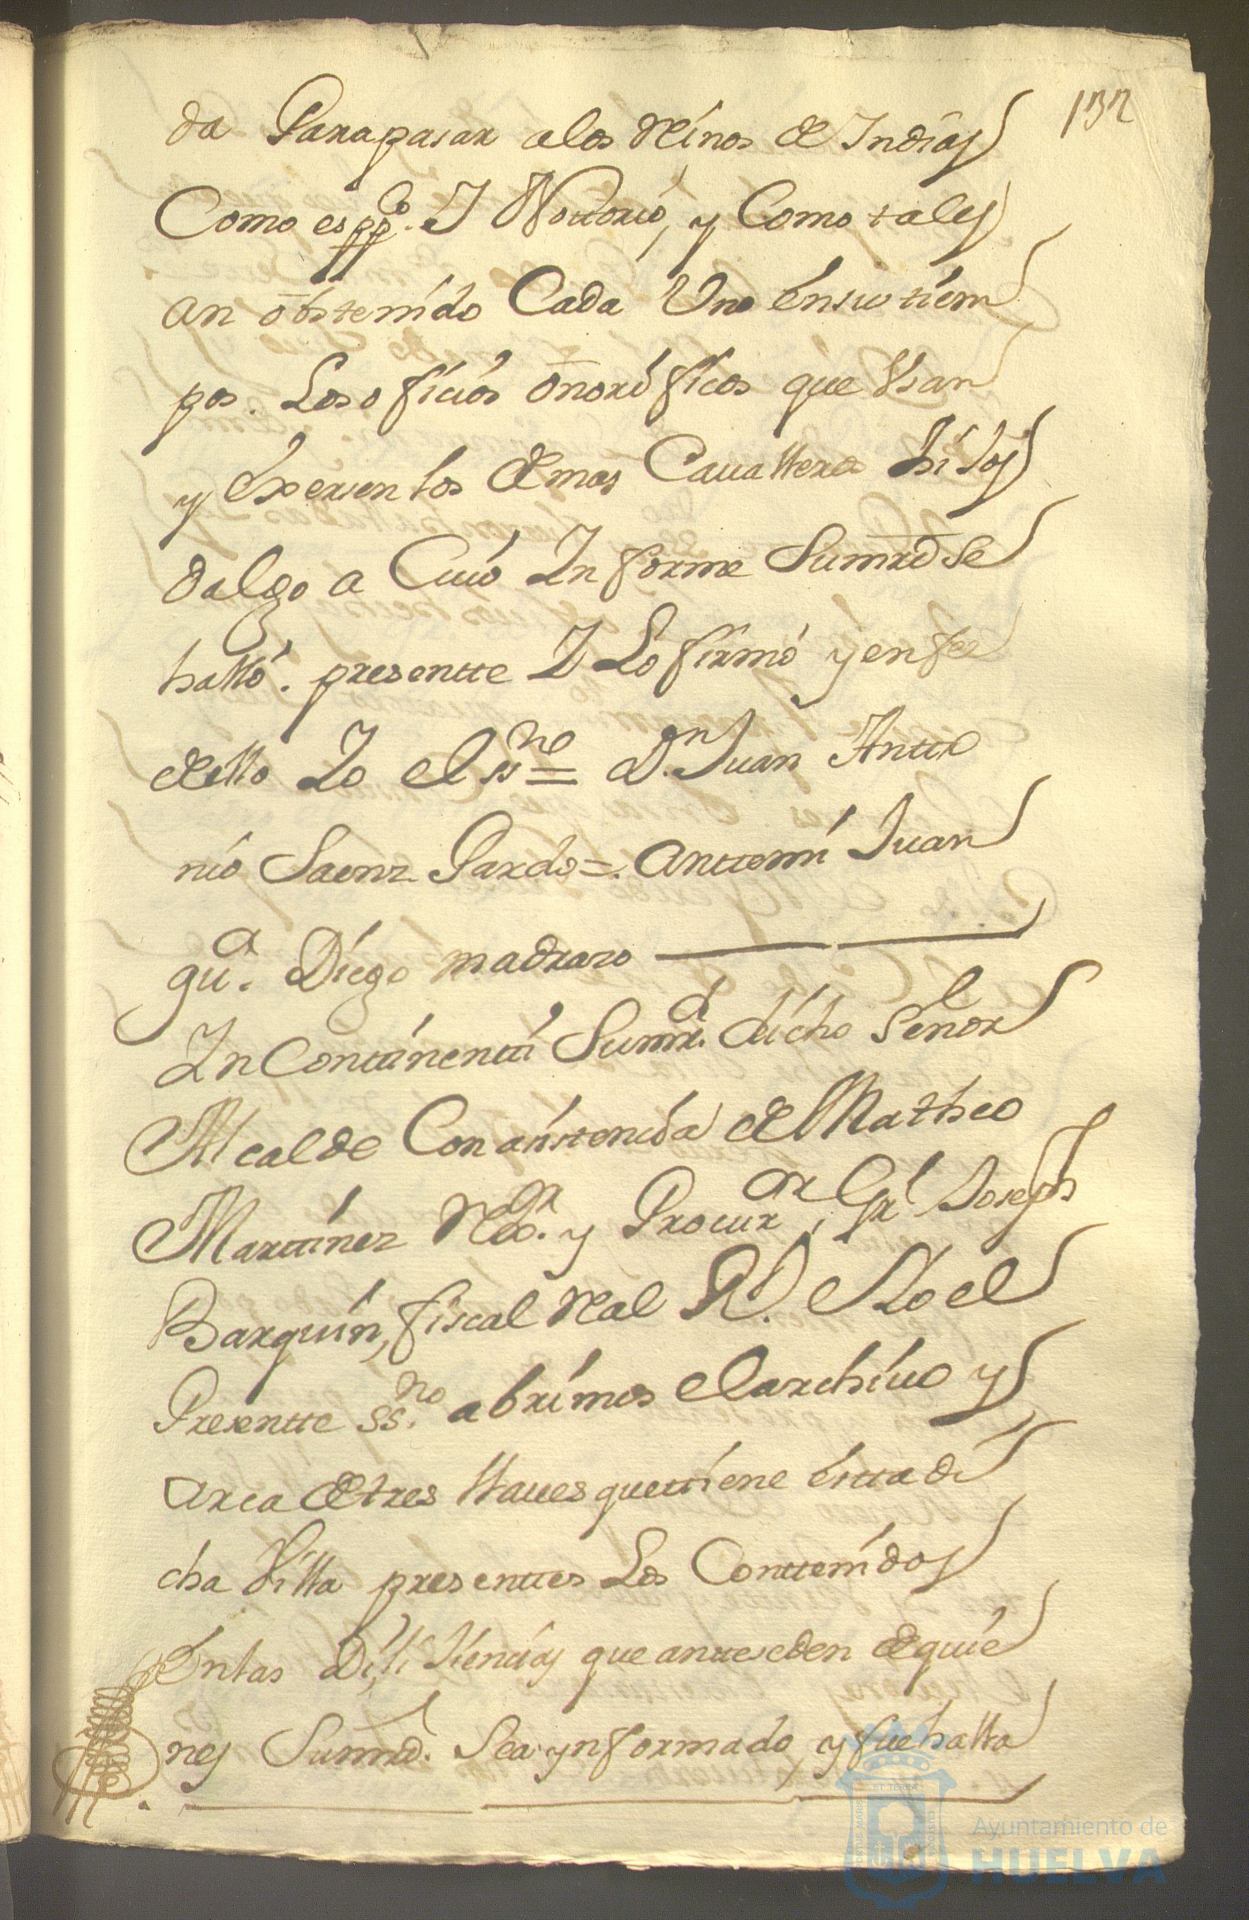 132
da Parapasar alos Reinos de Indias
Como espp.co I Nottorio, y Como tales
an obstenido Cada Uno ensu tiem
pos. Los oficios onorificos que Usan
y Exersen los demas Cavalleros Hijos
dalgo a Cuio Informe Sumrd Se
halló. presentte I Lo firmó y en fee
dello Yo el ssno = Dn. Juan Antto
nio Saenz Pardo =. Anttemi Juan
gua. Diego madrazo
In Continentti Sumrd. dicho Señor
Alcalde Con asistencia de Matheo
Marttinez Rexor. y Procuror, Grl Joseph
Barquin, fiscal Real R. D. e Io el
Presentte ssno. abrimos el archivo y
arca de tres llaves quettiene estta di
cha Villa presenttes Los Conttenidos
En las Dilijencias que antteseden de quie
nes Sumrd. Sea ynformado y fue halla
Ayuntamiento de
HUELVA